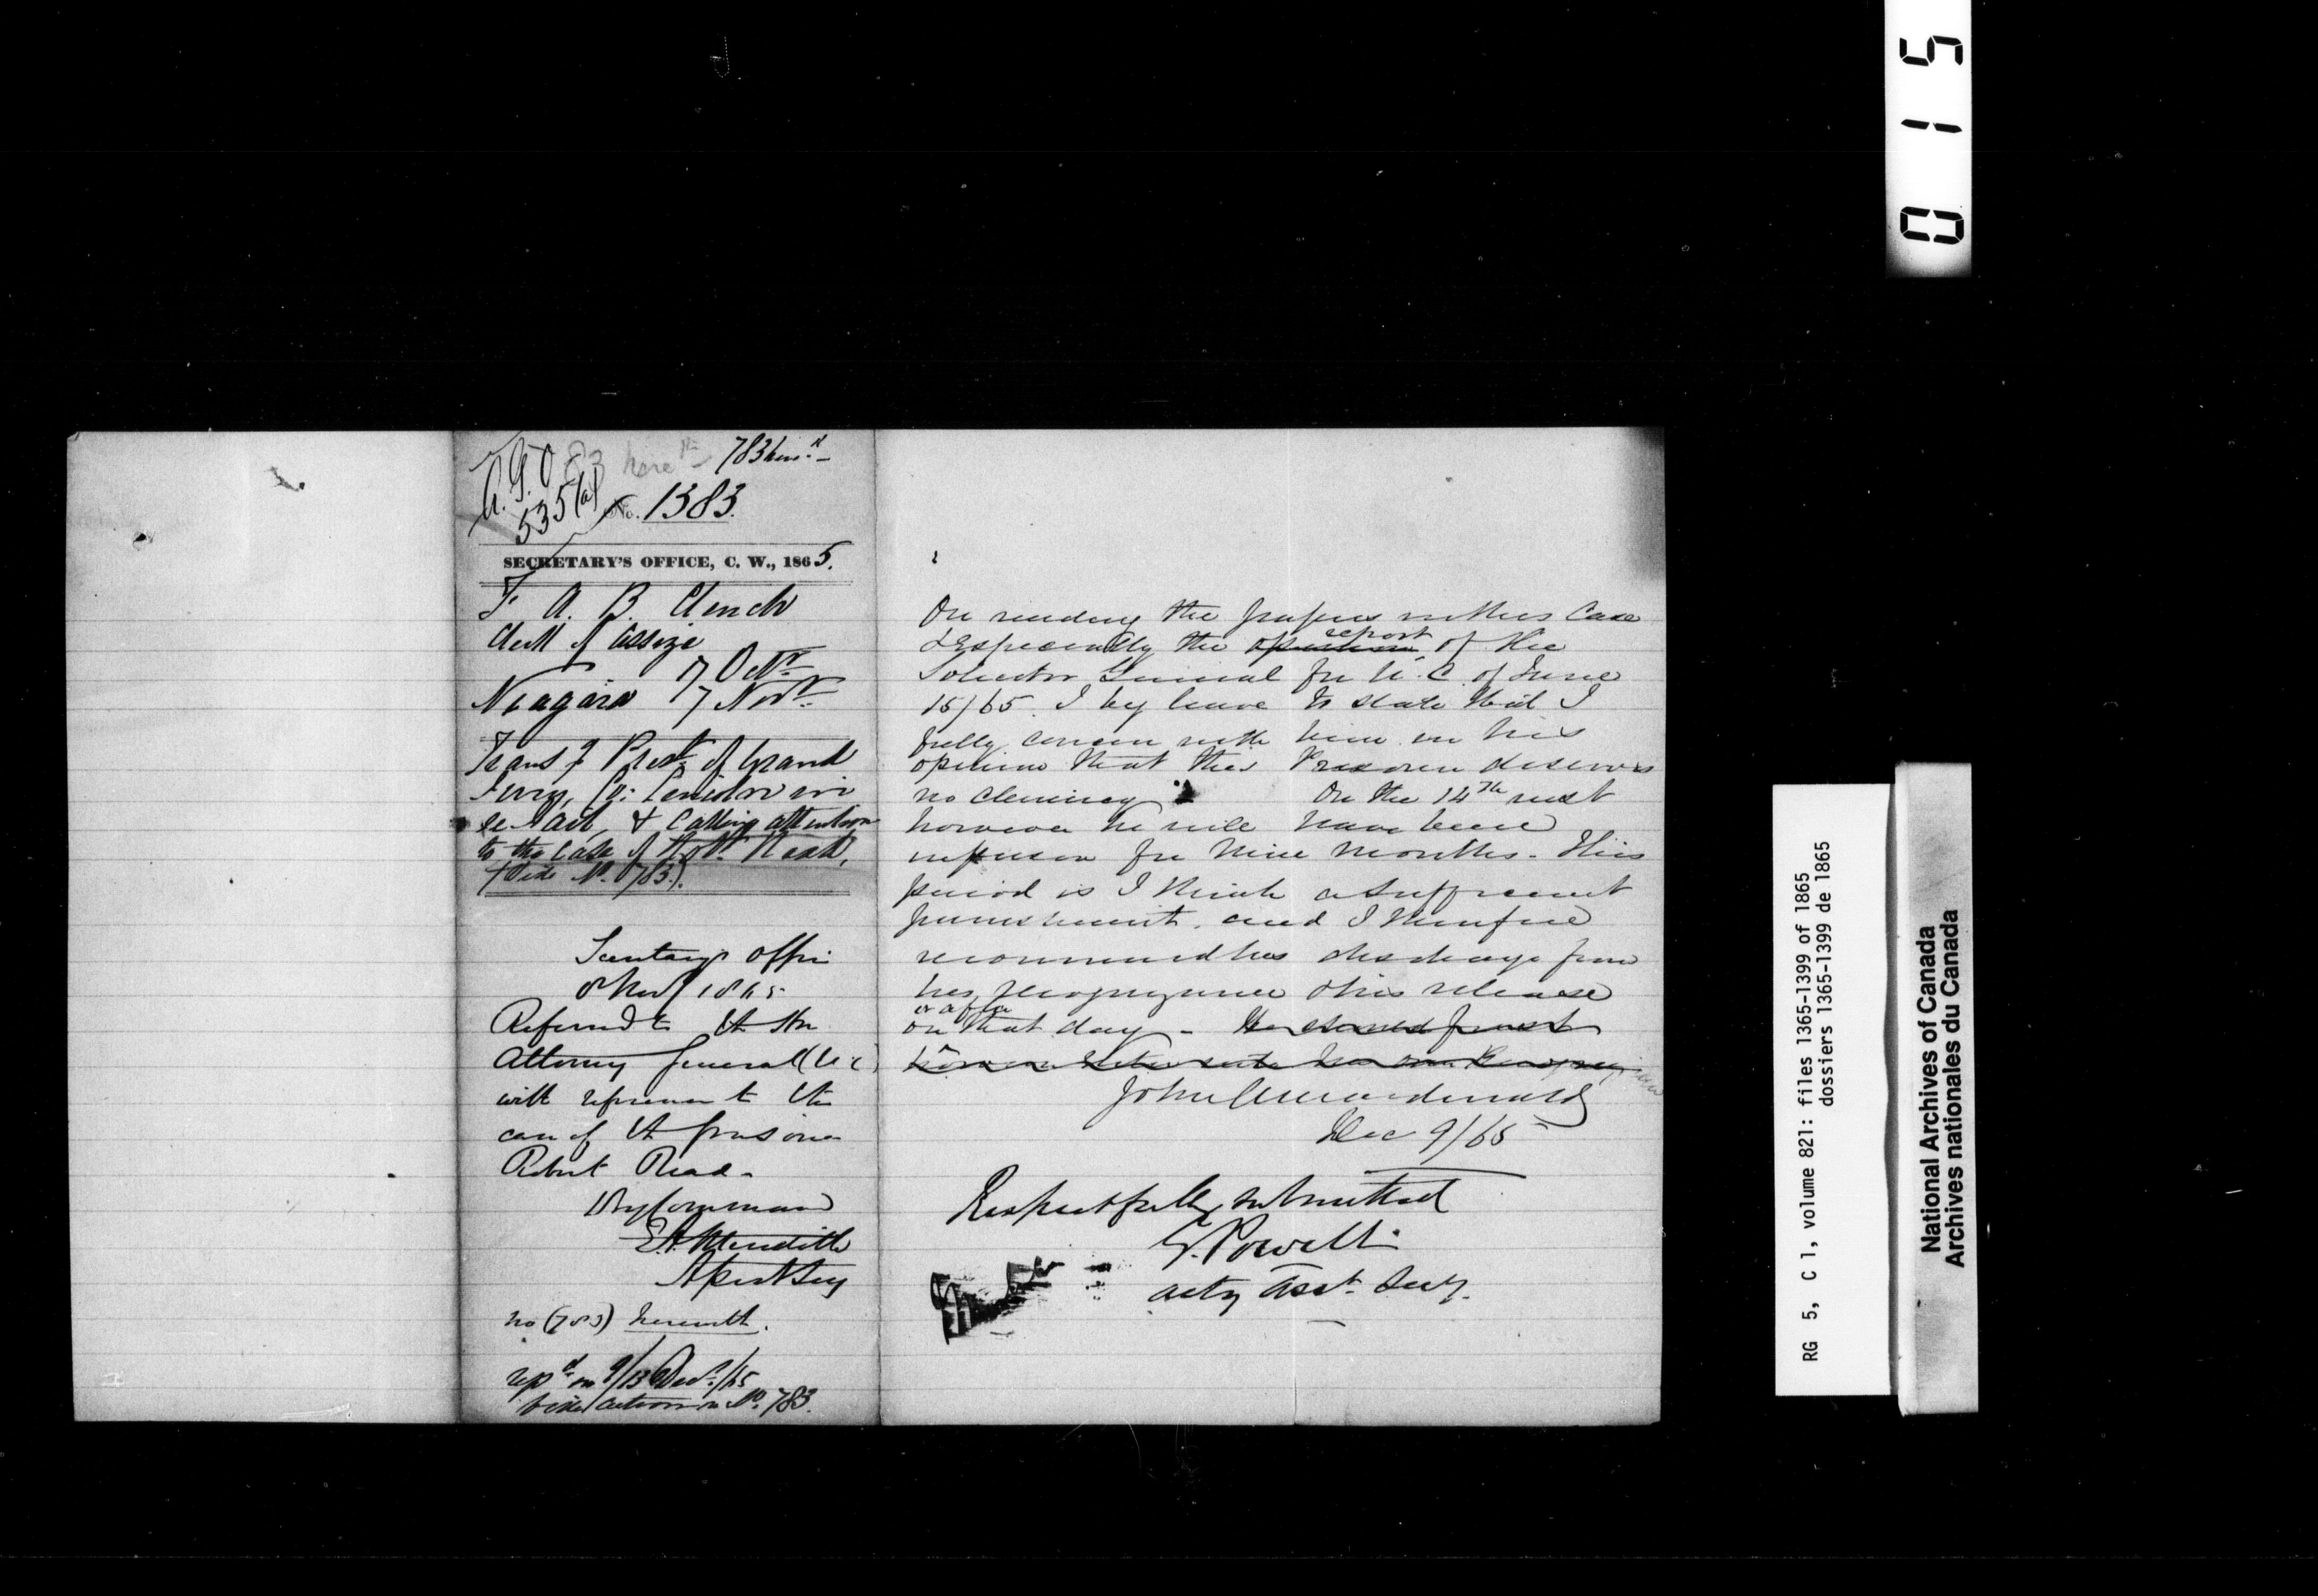 015
A.G.O.
535(a)
783 herewth
783 herewd
No. 1383.
SECRETARY'S OFFICE, C. W., 1865.
F. A. B. Clench
Clerk of Assize
17 Octr
Niagara 7 Novr
Transg Prest of Grand
Jury, Co: Lincoln in
re Gaol & Calling attention
to the Case of Robt Read,
(Vide No. 783).
Secretary's Office
8 Nov 1865
Referred to the Hon
Attorney General (U C)
with reference to the
case of the prisoner
Robert Read
By Command
E. A. Meredith
Asst Secy
No (783) herewith.
repd on 9/13 Decr/65
vide action on No. 783.
On reading the papers in this Case
& Especially the opinion report of the
Solicitor General for U. C. of June
15/65. I beg leave to state that I
fully concur with him in his
opinion that this Prisoner deserves
no clemency On the 14th inst
however he will have been
in prison for Nine Months. This
period is I think a sufficient
punishment. and I therefore
recommend his discharge from
his recognizance & his release
on or after that day -
John A Macdonald
Dec 9/65
Respectfully submitted
G. Powell
Actg Asst. Secy.
RG 5, C 1, volume 821: files 1365-1399 of 1865
dossiers 1365-1399 de 1865
National Archives of Canada
Archives nationales du Canada